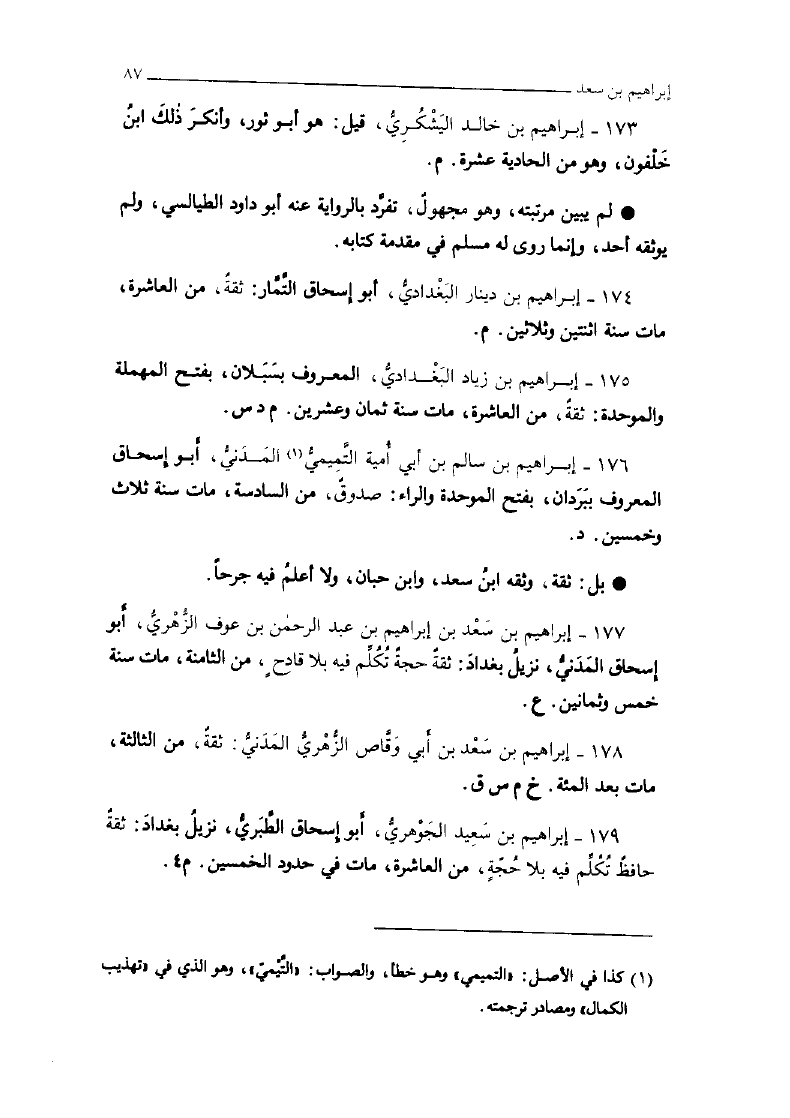 إبراهيم بن سعد ٨٧
١٧٣ ـ إبراهيم بن خالد اليَشْكُرِيُّ، قيل: هو أبو ثور، وأنكرَ ذٰلكَ ابنُ
خَلْفون، وهو من الحادية عشرة. م.
● لم يبين مرتبته، وهو مجهولٌ، تفرَّد بالرواية عنه أبو داود الطيالسي، ولم
يوثقه أحد، وإنما روى له مسلم في مقدمة كتابه.
١٧٤ ـ إبراهيم بن دينار البَغْداديُّ، أبو إسحاق التَّمَّار: ثقةٌ، من العاشرة،
مات سنة اثنتين وثلاثين. م.
١٧٥ ـ إبراهيم بن زياد البَغْداديُّ، المعروف بسَبَلان، بفتح المهملة
والموحدة: ثقةٌ، من العاشرة، مات سنة ثمان وعشرين. م د س.
١٧٦ ـ إبراهيم بن سالم بن أبي أُمية التَّميميُّ(١) المَدَنيُّ، أَبو إسحاق
المعروف ببَرَدان، بفتح الموحدة والراء: صدوقٌ، من السادسة، مات سنة ثلاث
وخمسين. د.
● بل: ثقة، وثقه ابنُ سعد، وابن حبان، ولا أعلمُ فيه جرحاً.
١٧٧ ـ إبراهيم بن سَعْد بن إبراهيم بن عبد الرحمٰن بن عوف الزُّهْريُّ، أَبو
إسحاق المَدَنيُّ، نزيلُ بغدادَ: ثقةٌ حجةٌ تُكُلِّم فيه بلا قادحٍ، من الثامنة، مات سنة
خمس وثمانين. ع.
١٧٨ ـ إبراهيم بن سَعْد بن أَبي وَقَّاص الزُّهْريُّ المَدَنيُّ: ثقةٌ، من الثالثة،
مات بعد المئة. خ م س ق.
١٧٩ ـ إبراهيم بن سَعِيد الجَوْهريُّ، أَبو إسحاق الطَّبَريُّ، نزيلُ بغدادَ: ثقةٌ
حافظٌ تُكُلِّم فيه بلا حُجّةٍ، من العاشرة، مات في حدود الخمسين. م٤.
(١) كذا في الأصل: «التميمي» وهو خطأ، والصواب: «التَّيْميّ»، وهو الذي في «تهذيب
الكمال» ومصادر ترجمته.